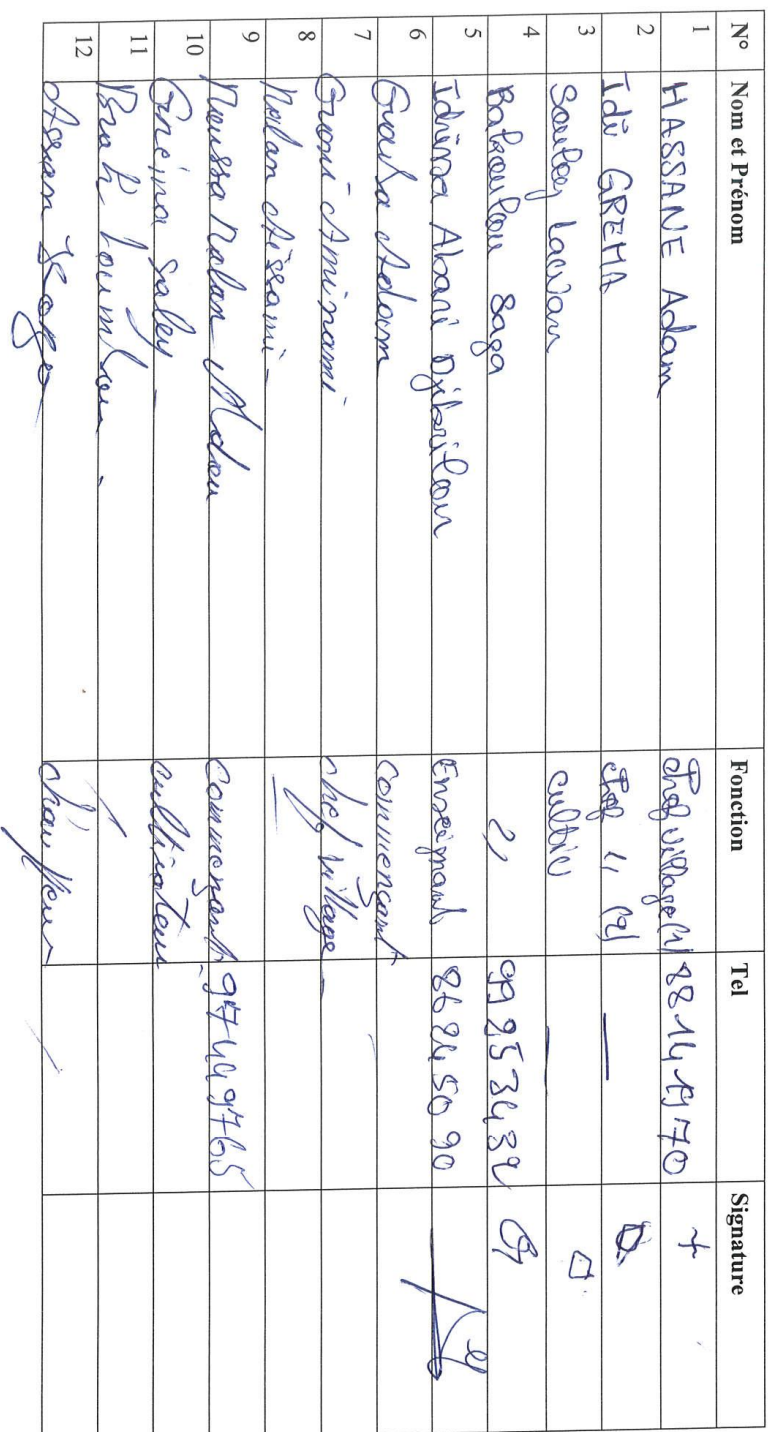 N° Nom et Prénom Fonction Tel Signature
1 HASSANE Adam Chef village (1) 88141970
2 Idi GREMA Chef " (2) —
3 Souley Laouan cultiv —
4 Bakoulou Saga " 99253432
5 Idrissa Abani Djibrilou Enseignant 86245090
6 Adam Commerçant
7 Groni Aminami chef village
8 Malan Aissami —
9 Moussa Malan Adou Commerçant 97449765
10 Saley cultivateur
11
12 chauffeur